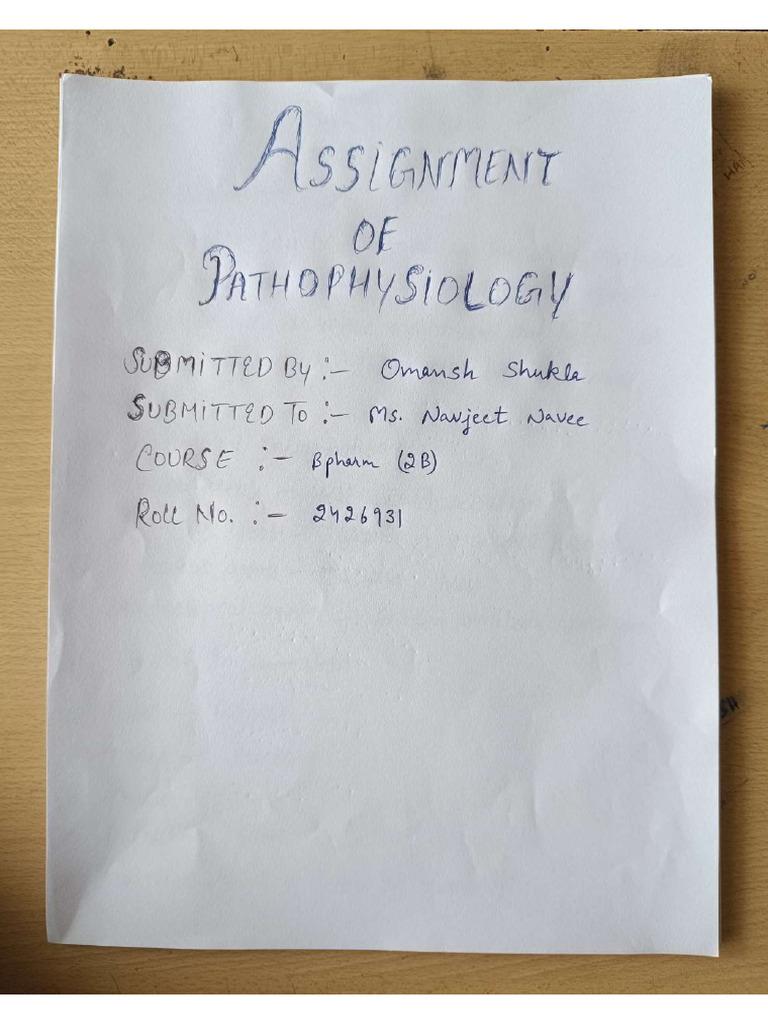 ASSIGNMENT
OF
PATHOPHYSIOLOGY
SUBMITTED By :- Omansh Shukla
SUBMITTED To :- Ms. Navjeet Navee
COURSE :- Bpharm (2B)
Roll No. :- 2426931